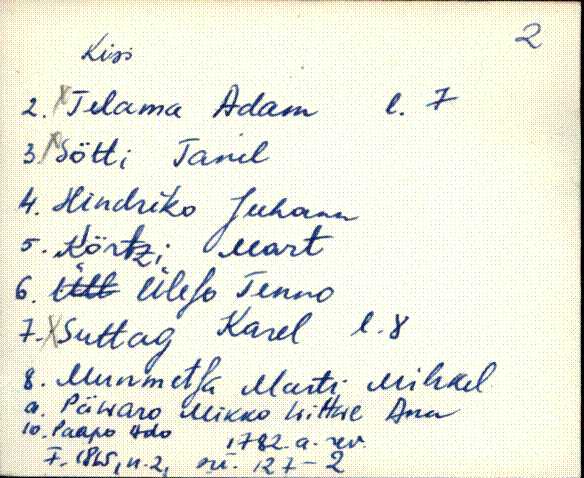 2
Kiss
2. Telama Adam l. 7
3. Sötti Tanil
4. Hindriko Juhann
5. Körtzi Mart
6. Ülefo Tenno
7. Suttag Karel l. 8
8. Murimetsa Marti Mihkel
9. Päwaro Mikko Wittwe Ann
10. Paapo Ado
1782. a. rev.
F. 1865, n. 2, sü. 127-2